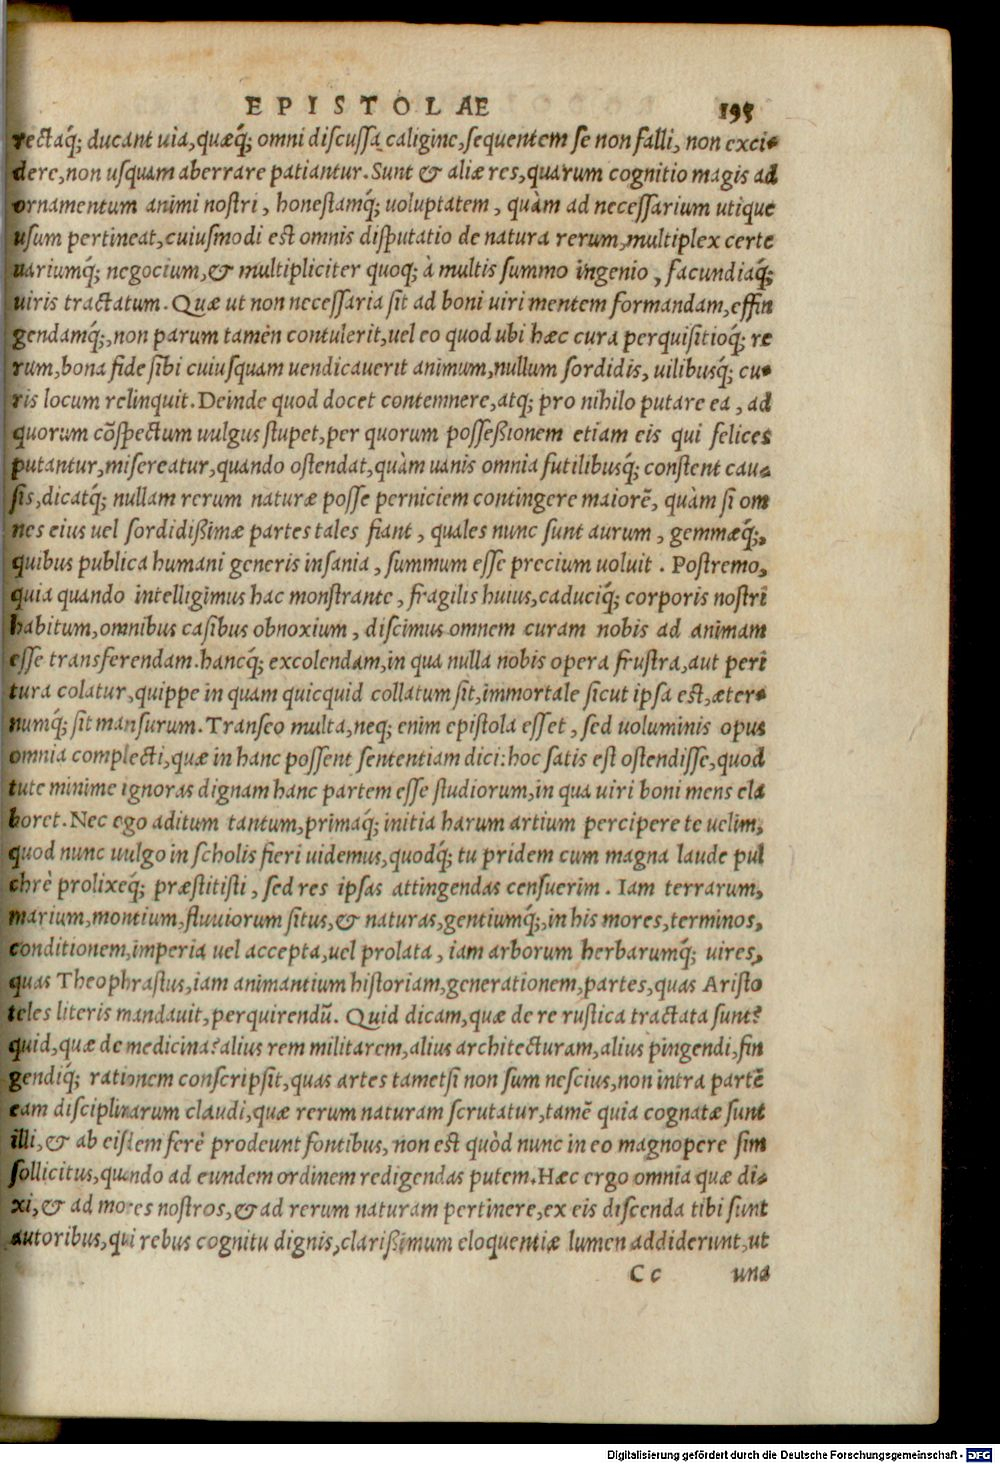 EPISTOLAE 195
rectaq́; ducant uia, quæq́; omni discussa caligine, sequentem se non falli, non exci-
dere, non usquam aberrare patiantur. Sunt & aliæ res, quarum cognitio magis ad
ornamentum animi nostri, honestamq́; uoluptatem, quàm ad necessarium utique
usum pertineat, cuiusmodi est omnis disputatio de natura rerum, multiplex certe
uariumq́; negocium, & multipliciter quoq; à multis summo ingenio, facundiaq́;
uiris tractatum. Quæ ut non necessaria sit ad boni uiri mentem formandam, effin
gendamq́;, non parum tamèn contulerit, uel eo quod ubi hæc cura perquisitioq́; re
rum, bona fide sibi cuiusquam uendicauerit animum, nullum sordidis, uilibusq́; cu-
ris locum relinquit. Deinde quod docet contemnere, atq; pro nihilo putare ea, ad
quorum cõspectum uulgus stupet, per quorum posseßionem etiam eis qui felices
putantur, misereatur, quando ostendat, quàm uanis omnia futilibusq́; constent cau-
sis, dicatq́; nullam rerum naturæ posse perniciem contingere maiorẽ, quàm si om
nes eius uel sordidißimæ partes tales fiant, quales nunc sunt aurum, gemmæq́;,
quibus publica humani generis insania, summum esse precium uoluit. Postremo,
quia quando intelligimus hac monstrante, fragilis huius, caduciq́; corporis nostri
habitum, omnibus casibus obnoxium, discimus omnem curam nobis ad animam
esse transferendam. hancq́; excolendam, in qua nulla nobis opera frustra, aut peri
tura colatur, quippe in quam quicquid collatum sit, immortale sicut ipsa est, æter-
numq́; sit mansurum. Transeo multa, neq; enim epistola esset, sed uoluminis opus
omnia complecti, quæ in hanc possent sententiam dici: hoc satis est ostendisse, quod
tute minime ignoras dignam hanc partem esse studiorum, in qua uiri boni mens ela
boret. Nec ego aditum tantum, primaq́; initia harum artium percipere te uelim,
quod nunc uulgo in scholis fieri uidemus, quodq́; tu pridem cum magna laude pul
chrè prolixeq́; præstitisti, sed res ipsas attingendas censuerim. Iam terrarum,
marium, montium, fluuiorum situs, & naturas, gentiumq́;, in his mores, terminos,
conditionem, imperia uel accepta, uel prolata, iam arborum herbarumq́; uires,
quas Theophrastus, iam animantium historiam, generationem, partes, quas Aristo
teles literis mandauit, perquirendũ. Quid dicam, quæ de re rustica tractata sunt?
quid, quæ de medicina? alius rem militarem, alius architecturam, alius pingendi, fin
gendiq́; rationem conscripsit, quas artes tametsi non sum nescius, non intra partẽ
eam disciplinarum claudi, quæ rerum naturam scrutatur, tamẽ quia cognatæ sunt
illi, & ab eisdem ferè prodeunt fontibus, non est quòd nunc in eo magnopere sim
sollicitus, quando ad eundem ordinem redigendas putem. Hæc ergo omnia quæ di-
xi, & ad mores nostros, & ad rerum naturam pertinere, ex eis discenda tibi sunt
autoribus, qui rebus cognitu dignis, clarißimum eloquentiæ lumen addiderunt, ut
Cc una
Digitalisierung gefördert durch die Deutsche Forschungsgemeinschaft - DFG